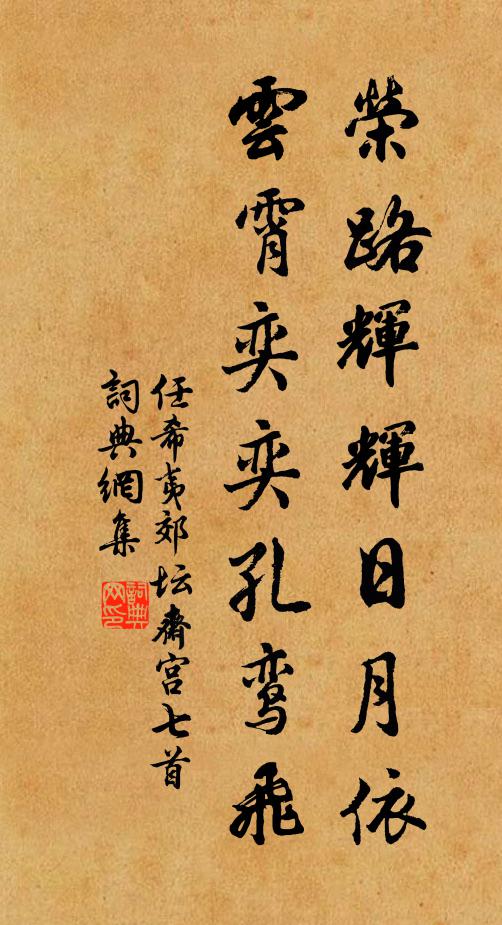 榮路輝輝日月依
雲霄奕奕孔鸾飛
任希夷郊坛齋宫七首
詞典網集
詞典
网印